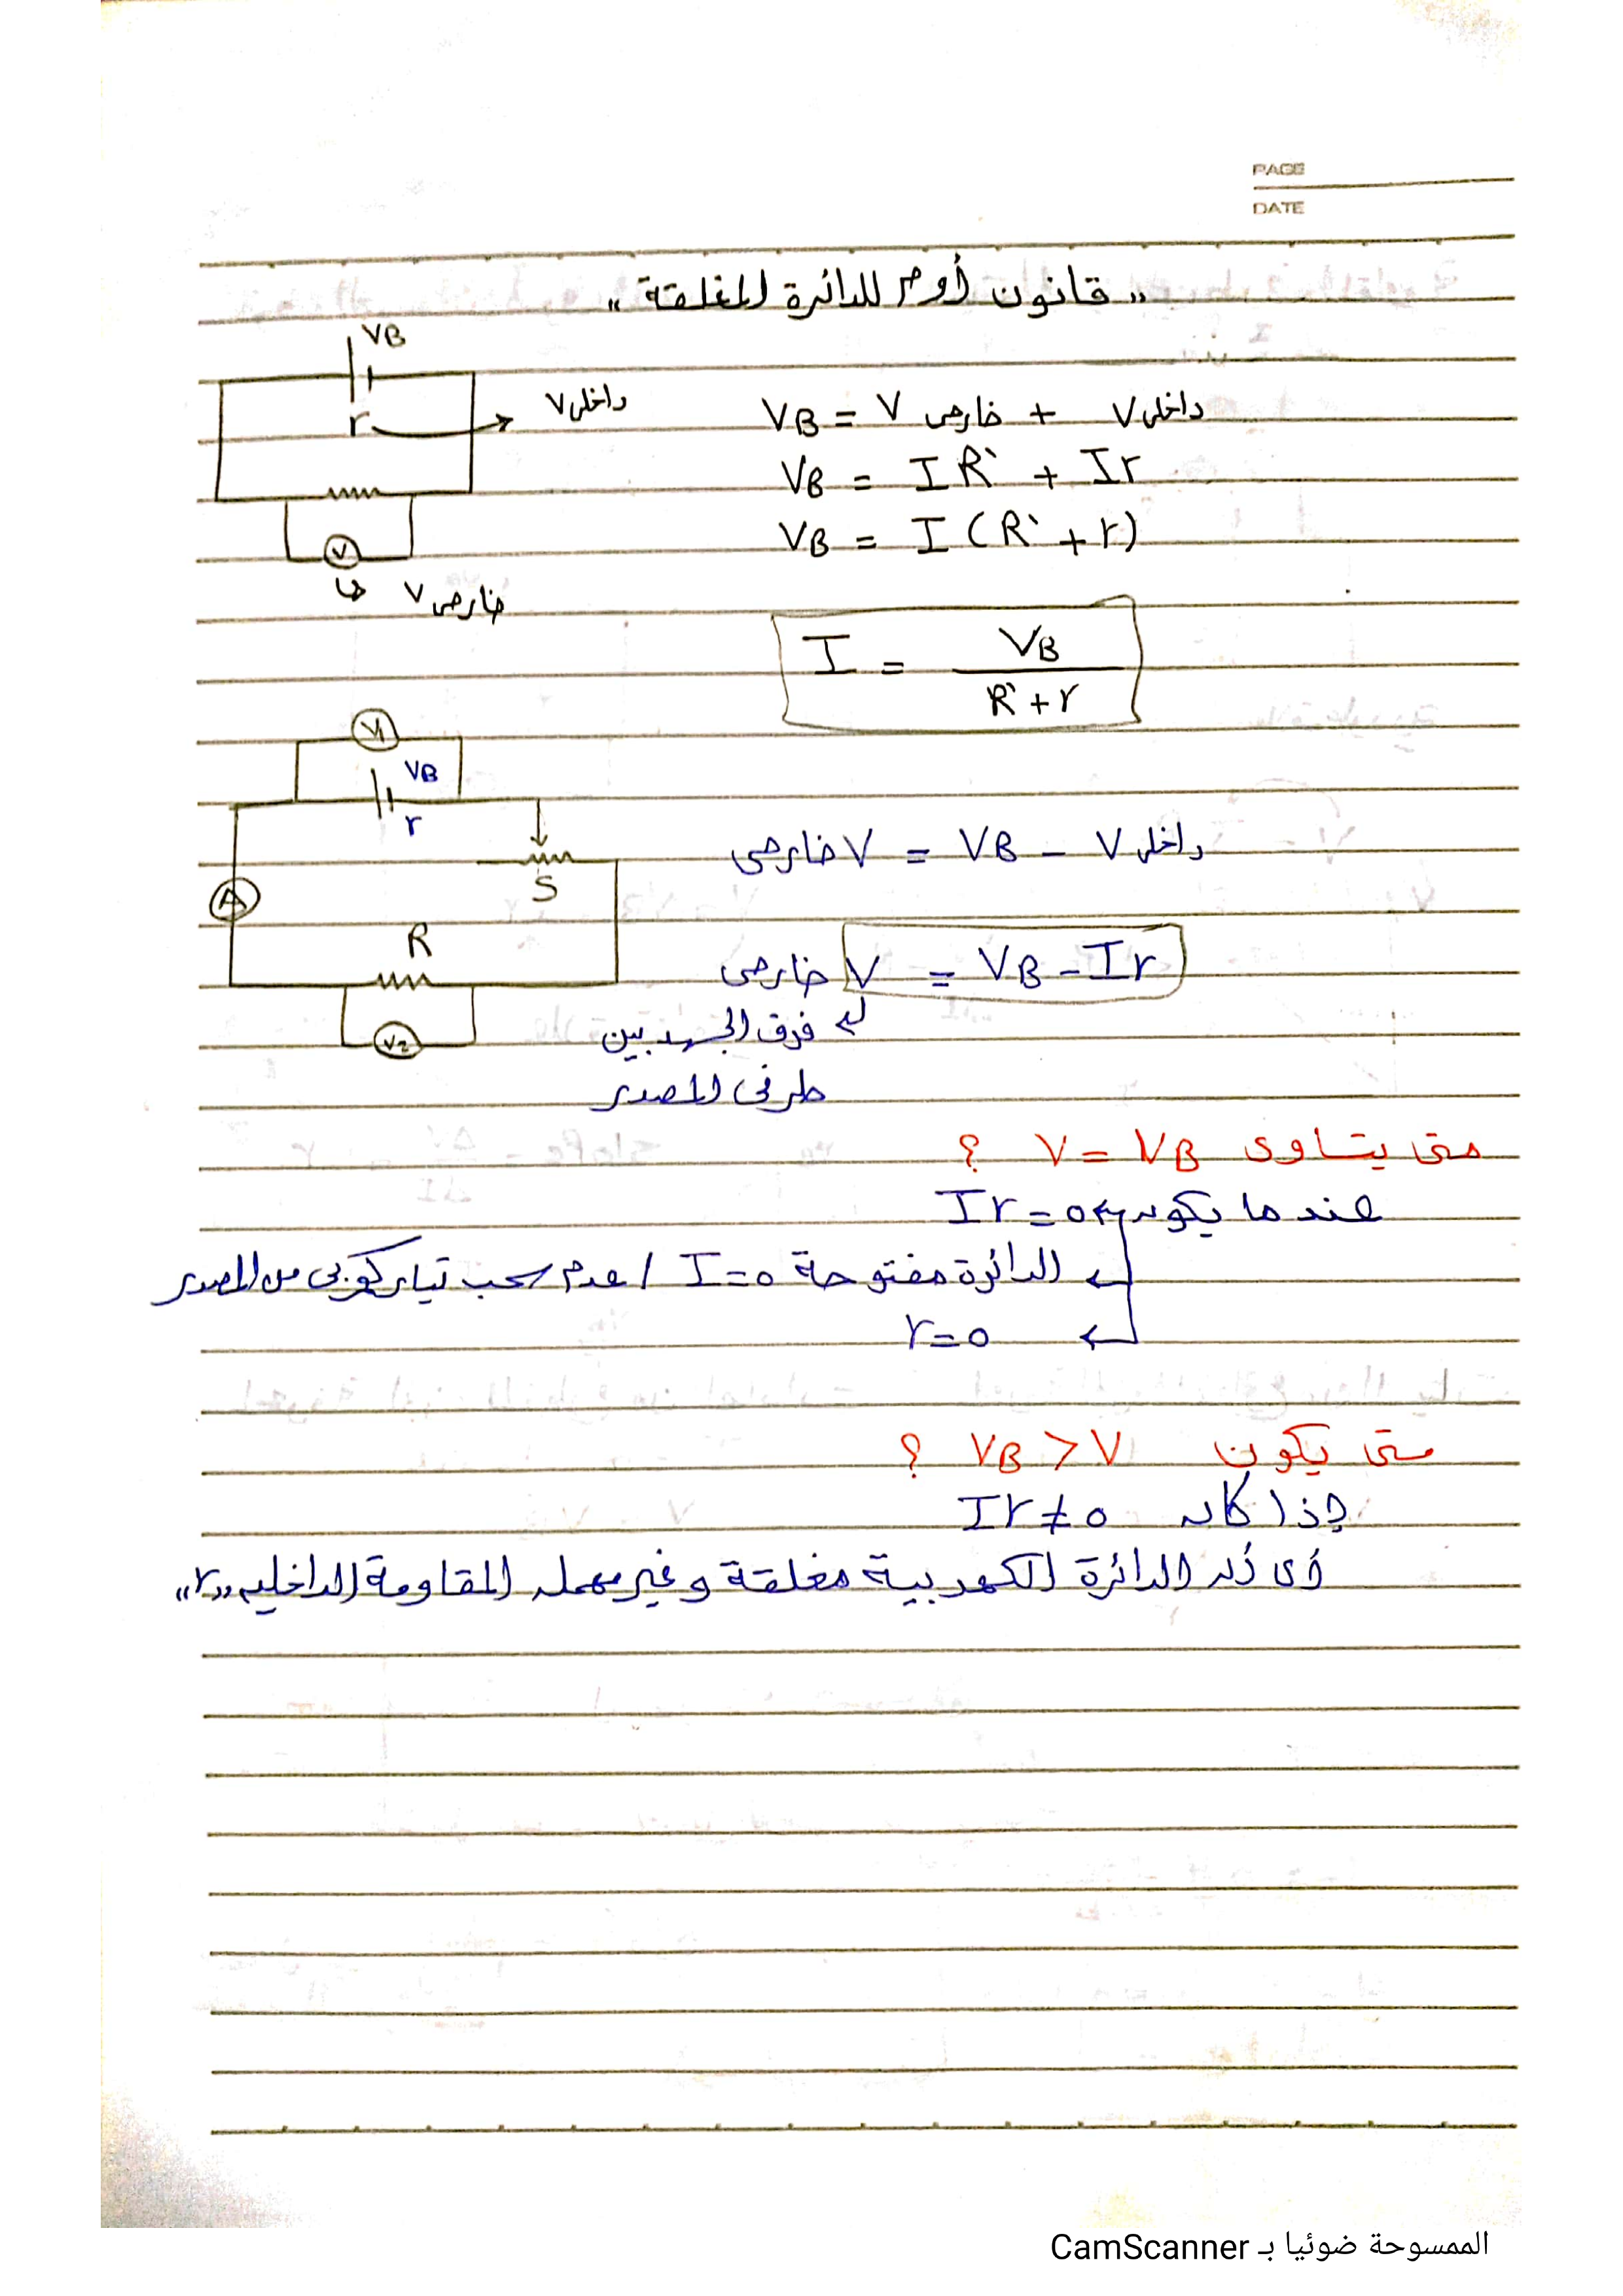 PAGE
DATE
"قانون أوم للدائرة المغلقة"
VB
r
V داخلى
V
V خارجى
VB = V خارجى + V داخلى
VB = IR` + Ir
VB = I (R` + r)
I = VB / R` + r
V1
VB
r
S
A
R
V2
V خارجى = VB - V داخلى
V خارجى = VB - Ir
فرق الجهد بين
طرفى المصدر
متى يتساوى V = VB ؟
عندما يكون Ir = 0
الدائرة مفتوحة I = 0 / عدم سحب تيار كهربى من المصدر
r = 0
متى يكون VB > V ؟
إذا كان Ir ≠ 0
أى أن الدائرة الكهربية مغلقة وغير مهمله المقاومة الداخليه "r"
الممسوحة ضوئيا بـ CamScanner